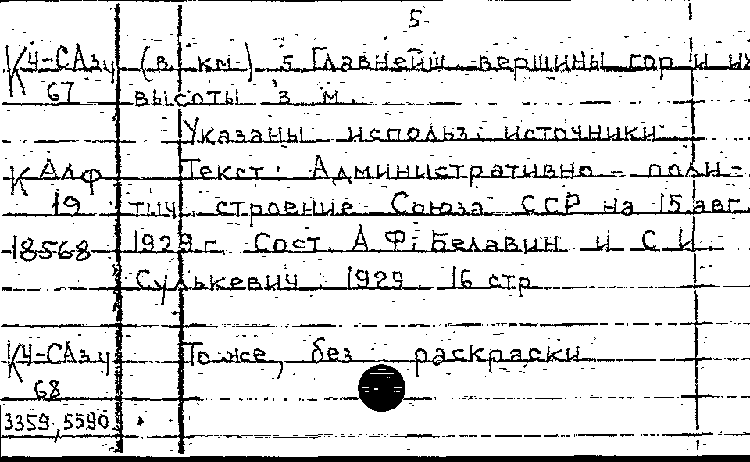 5.
К4-СAзу (в. км.) 5 Главнейш. вершины гор и их
67 высоты в м.
Указаны использ. источники
К Алф Текст: Административно-поли-
19 тич. строение Союза ССР на 15 авг.
18568 1929 г. Сост. А. Ф. Белавин и С. И.
Сулькевич. 1929. 16 стр.
К4-СAзу То же, без раскраски
68
3359, 5590